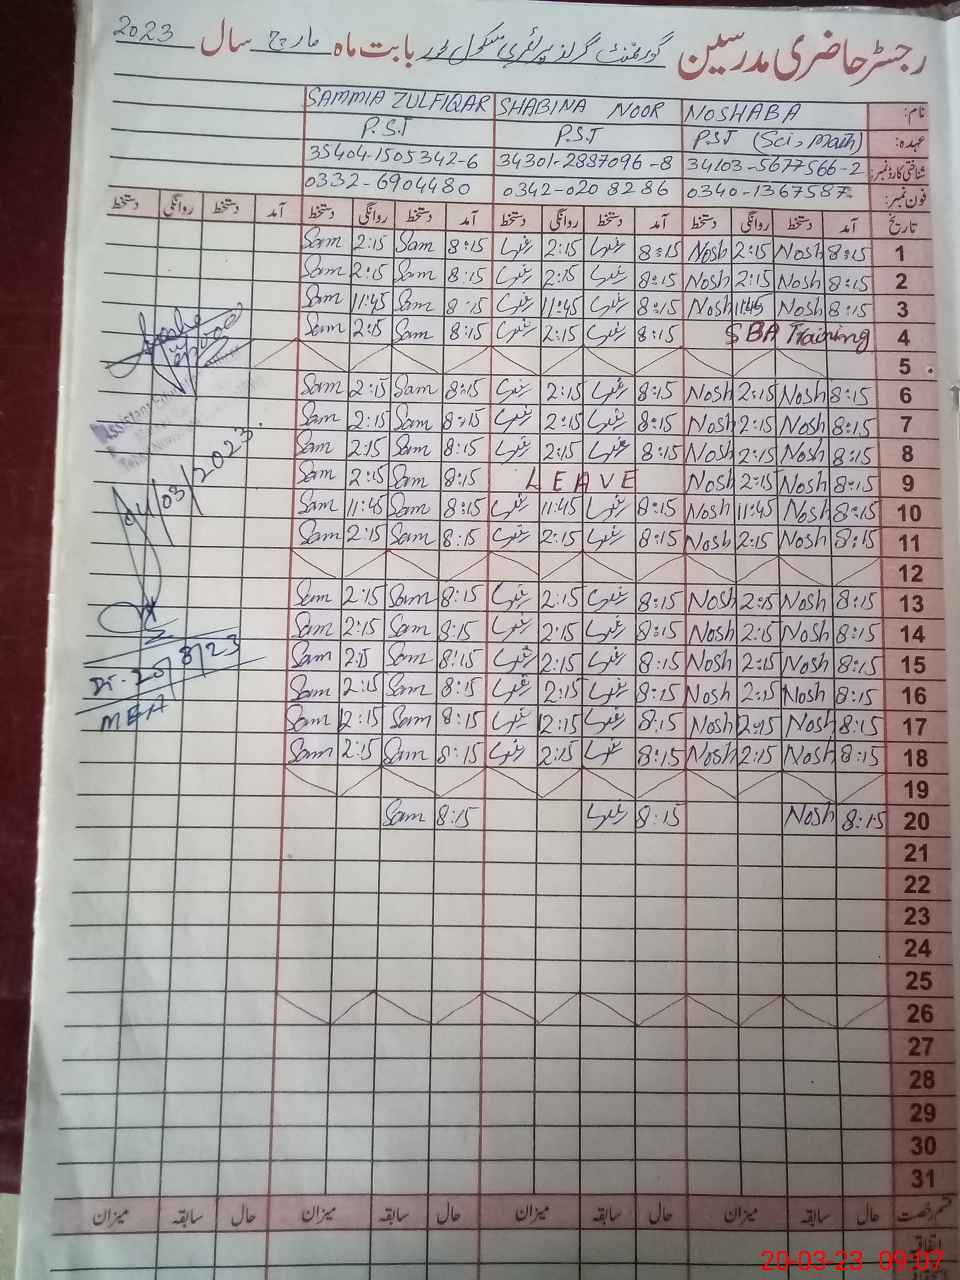 رجسٹر حاضری مدرسین گورنمنٹ گرلز پرائمری سکول بابت ماہ مارچ سال 2023
نام: NOSHABA SHABINA NOOR SAMMIA ZULFIQAR
عہدہ: P.ST (Sci, Math) P.ST P.ST
شناختی کارڈ نمبر: 34103-5677566-2 34301-2887096-8 35404-1505342-6
فون نمبر: 0340-1367587 0342-0208286 0332-6904480
تاریخ آمد دستخط روانگی دستخط آمد دستخط روانگی دستخط آمد دستخط روانگی دستخط آمد دستخط روانگی دستخط
1 8:15 Nosh 2:15 Nosh 8:15 2:15 8:15 Sam 2:15 Sam
2 8:15 Nosh 2:15 Nosh 8:15 2:15 8:15 Sam 2:15 Sam
3 8:15 Nosh 11:45 Nosh 8:15 11:45 8:15 Sam 11:45 Sam
4 SBA Training 8:15 2:15 8:15 Sam 2:15 Sam
5
6 8:15 Nosh 2:15 Nosh 8:15 2:15 8:15 Sam 2:15 Sam
7 8:15 Nosh 2:15 Nosh 8:15 2:15 8:15 Sam 2:15 Sam
8 8:15 Nosh 2:15 Nosh 8:15 2:15 8:15 Sam 2:15 Sam
9 8:15 Nosh 2:15 Nosh LEAVE 8:15 Sam 2:15 Sam
10 8:15 Nosh 11:45 Nosh 8:15 11:45 8:15 Sam 11:45 Sam
11 8:15 Nosh 2:15 Nosh 8:15 2:15 8:15 Sam 2:15 Sam
12
13 8:15 Nosh 2:15 Nosh 8:15 2:15 8:15 Sam 2:15 Sam
14 8:15 Nosh 2:15 Nosh 8:15 2:15 8:15 Sam 2:15 Sam
15 8:15 Nosh 2:15 Nosh 8:15 2:15 8:15 Sam 2:15 Sam
16 8:15 Nosh 2:15 Nosh 8:15 2:15 8:15 Sam 2:15 Sam
17 8:15 Nosh 2:15 Nosh 8:15 2:15 8:15 Sam 2:15 Sam
18 8:15 Nosh 2:15 Nosh 8:15 2:15 8:15 Sam 2:15 Sam
19
20 8:15 Nosh 8:15 8:15 Sam
21
22
23
24
25
26
27
28
29
30
31
قسم رخصت حال سابقہ میزان حال سابقہ میزان حال سابقہ میزان حال سابقہ میزان
اتفاقیہ
04/03/2023
MEA
20-03-23 09:07